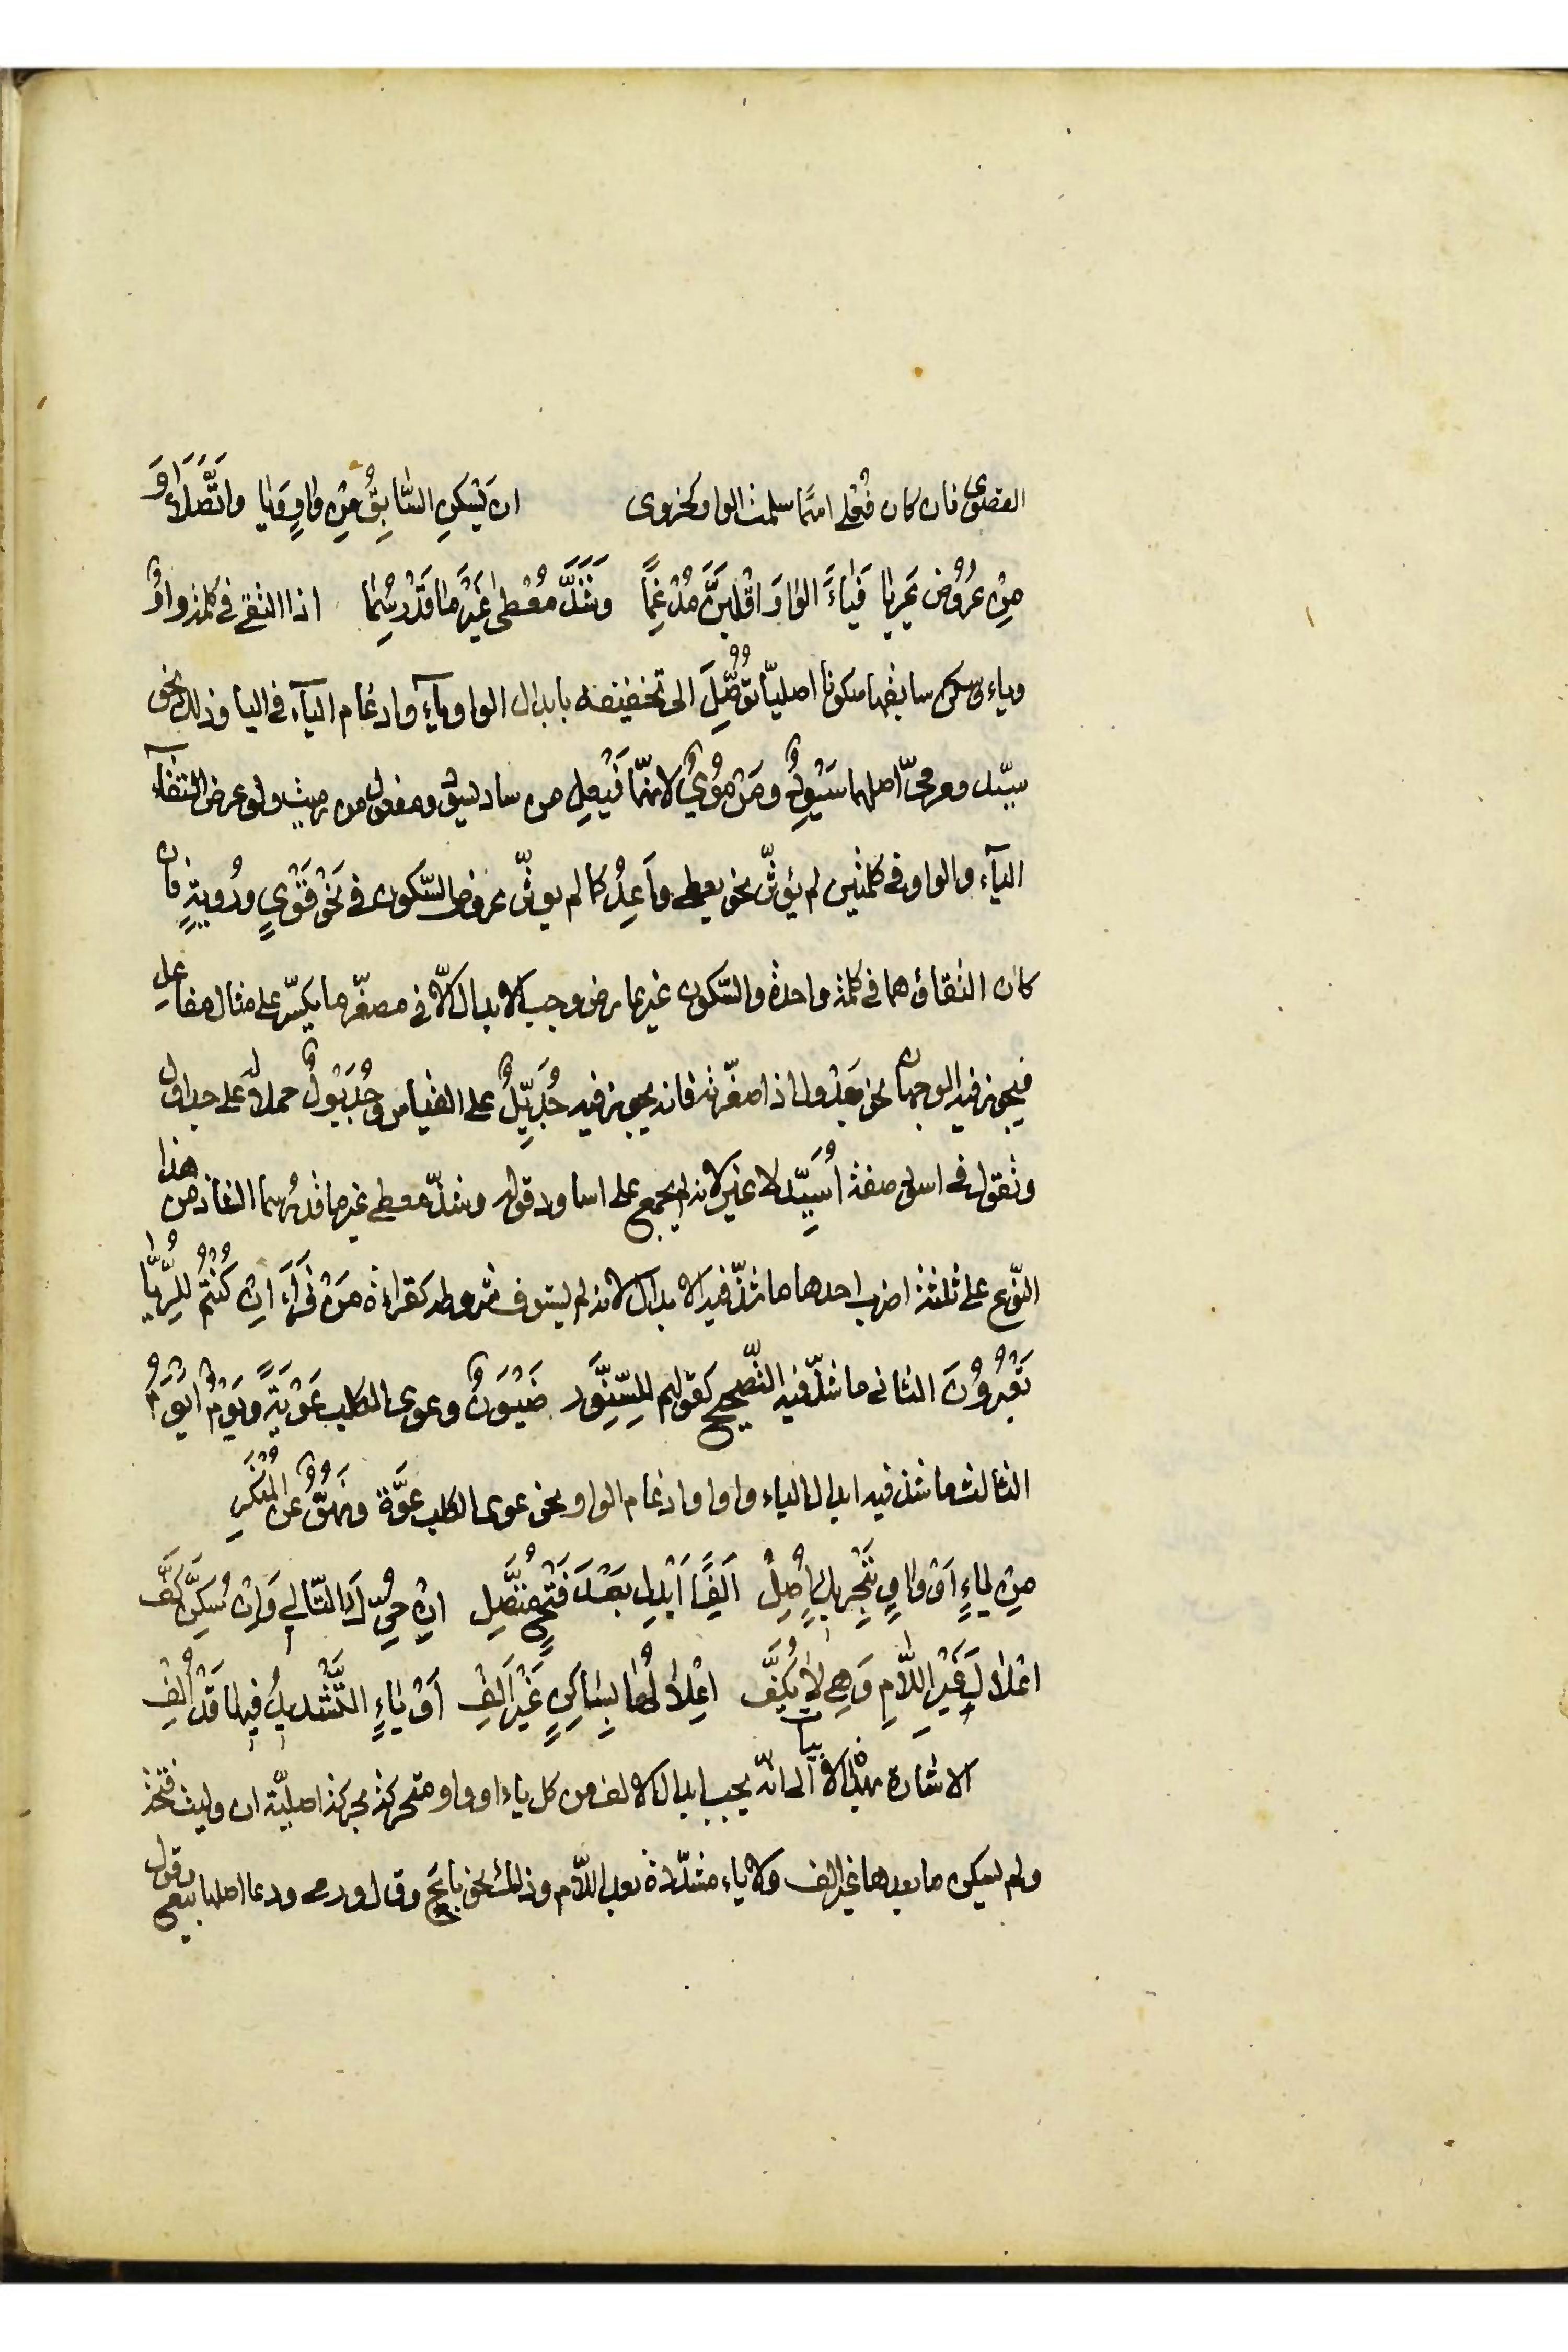 القصوى فان كان فُعلى اسمًا سلمت الواو كخزوى ان يَسْكُنِ السَّابِقُ مِنْ وَاوٍ وَيَا وَاتَّصَلَا وَ
مِنْ عُرُوضٍ عَرِيَا فَيَاءً الوَاوَ اقْلِبَنَّ مُدْغِمًا وَشَذَّ مُعْطًى غَيْرَ مَا قَدْ رُسِمَا اذا التقى فى كلمة واوٌ
وياء وسكن سابقهما سكونا اصليّا تُوُصِّلَ الى تخفيفه بابدال الواو ياءً وادغام الياء فى اليا وذلك نحو
سيّد ومرمىّ اصلهما سَيْوِدٌ ومَرْمُوْىٌ لانهما فَيْعِل من ساد يسود ومفعول من رميت ولو عرض التقاء
الياء والواو فى كلمتين لم يؤثّر نحو يعطى وَاعِدٌ كما لم يوثّر عروض السّكون فى نَحْوِ قَوْىٍ ورُويةٍ فان
كان التقاؤهما فى كلمة واحدة والسّكون غير عارض وجب الابدال الّا فى مصغّر ما يكسّر على مثال مفاعل
فيجوز فيه الوجهان نحو جَدْول اذا صغّرته فانه يجوز فيه جُدَيِّلٌ على القياس وجُدَيْوِلٌ حملاً على جداول
وتقول فى اسود صفة اُسَيِّد لا غير لانه لم يجمع على اساود قوله وشذّ معطى غير ما قد رسما الشاذ من هذا
النّوع على ثلثة اضرب احدها ما شذّ فيه الابدال لانه لم يستوف شروطه كقراءة مَنْ قَرَأَ اِنْ كُنْتُمْ لِلرُّيَّا
تَعْبُرُوْنَ الثانى ما شذّ فيه التّصحيح كقولهم للسِّنَّوْر ضَيْوَنٌ وعوى الكلب عَوْيَةً ويَوْمٌ اَيْوَمُ
الثالث ما شذ فيه ابدال الياء واوا وادغام الواو نحو عوى الكلب عوَّة ونَهُوٌّ عن المُنْكَرِ
مِنْ يَاءٍ اَوْ وَاوٍ بِتَحْرِيكٍ اُصِلْ اَلِفًا اَبْدِلْ بَعْدَ فَتْحٍ مُتَّصِلْ اِنْ حُرِّكَ التَّالِى وَاِنْ سُكِّنَ كَفّ
اعْلَالَ غَيْرِ اللَّامِ وَهِىَ لَا يُكَفّ اِعْلَالُهَا بِسَاكِنٍ غَيْرِ اَلِفْ اَوْ يَاءٍ التَّشْدِيدُ فِيهَا قَدْ اُلِفْ
الاشارة بهذه الابيات الى انّه يجب ابدال الالف من كل ياء او واو متحركة بحركة اصليّة ان وليت فتحة
ولم يسكن ما بعدها غير الف ولا ياء مشدّدة بعد اللّام وذلك نحو باع وقال ورمى ودعا اصلها بيع وقول